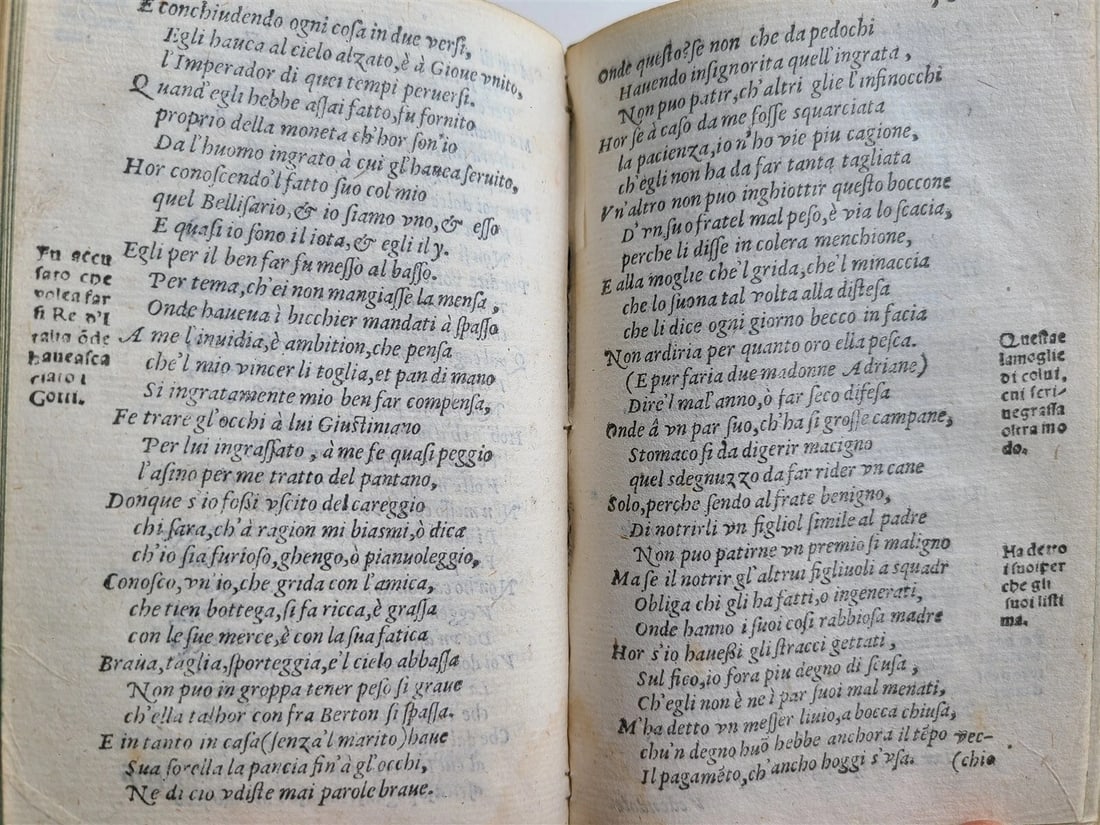 E conchiudendo ogni coſa in due verſi,
Egli hauea al cielo alzato, è à Gioue vnito,
l'Imperador di quei tempi peruerſi.
Quand'egli hebbe aſſai fatto, fu fornito
proprio della moneta ch'hor ſon'io
Da l'huomo ingrato à cui gl'hauea ſeruito,
Hor conoſcendo'l fatto ſuo col mio
quel Belliſario, & io ſiamo vno, & eſſo
E quaſi io ſono il iota, & egli il y.
Egli per il ben far fu meſſo al baſſo.
Per tema, ch'ei non mangiaſſe la menſa,
Onde haueua i bicchier mandati à ſpaſſo
A me l'inuidia, è ambition, che penſa
che'l mio vincer li toglia, et pan di mano
Si ingratamente mio ben far compenſa,
Fe trare gl'occhi à lui Giuſtiniano
Per lui ingraſſato, à me fe quaſi peggio
l'aſino per me tratto del pantano,
Donque s'io foßi vſcito del careggio
chi ſara, ch'à ragion mi biaſmi, ò dica
ch'io ſia furioſo, ghengo, ò pianuoleggio,
Conoſco, vn'io, che grida con l'amica,
che tien bottega, ſi fa ricca, è graſſa
con le ſue merce, è con la ſua fatica
Braua, taglia, ſporteggia, e'l cielo abbaſſa
Non puo in groppa tener peſo ſi graue
ch'ella talhor con fra Berton ſi ſpaſſa.
E in tanto in caſa (ſenza'l marito) haue
Sua ſorella la pancia fin'à gl'occhi,
Ne di cio vdiſte mai parole braue.
Vn accu
ſato che
volea far
ſi Re d'I
talia õde
haueaſca
ciato i
Gotti.
Onde queſto? ſe non che da pedochi
Hauendo inſignorita quell'ingrata,
Non puo patir, ch'altri glie l'infinocchi
Hor ſe à caſo da me foſſe squarciata
la pacienza, io n'ho vie piu cagione,
ch'egli non ha da far tanta tagliata
Vn'altro non puo inghiottir queſto boccone
D'vn ſuo fratel mal peſo, è via lo ſcacia,
perche li diſſe in colera menchione,
E alla moglie che'l grida, che'l minaccia
che lo ſuona tal volta alla diſteſa
che li dice ogni giorno becco in facia
Non ardiria per quanto oro ella peſca.
(E pur faria due madonne Adriane)
Dire'l mal'anno, ò far ſeco difeſa
Onde â vn par ſuo, ch'ha ſi groſſe campane,
Stomaco ſi da digerir macigno
quel sdegnuzzo da far rider vn cane
Solo, perche ſendo al frate benigno,
Di notrirli vn figliol ſimile al padre
Non puo patirne vn premio ſi maligno
Ma ſe il notrir gl'altrui figliuoli a squadr
Obliga chi gli ha fatti, o ingenerati,
Onde hanno i ſuoi coſi rabbioſa madre
Hor s'io haueßi gli ſtracci gettati,
Sul fico, io fora piu degno di ſcuſa,
Ch'egli non è ne i par ſuoi mal menati,
M'ha detto vn meſſer liuio, a bocca chiuſa,
chu'n degno huõ hebbe anchora il tẽpo vec-
Il pagamẽto, ch'ancho hoggi s'vſa. (chio
Queſta e
la moglie
di colui,
cui ſcri-
negraſſa
oltra mo
do.
Ha detto
i ſuoi per
che gli
ſuoi liſti
ma.